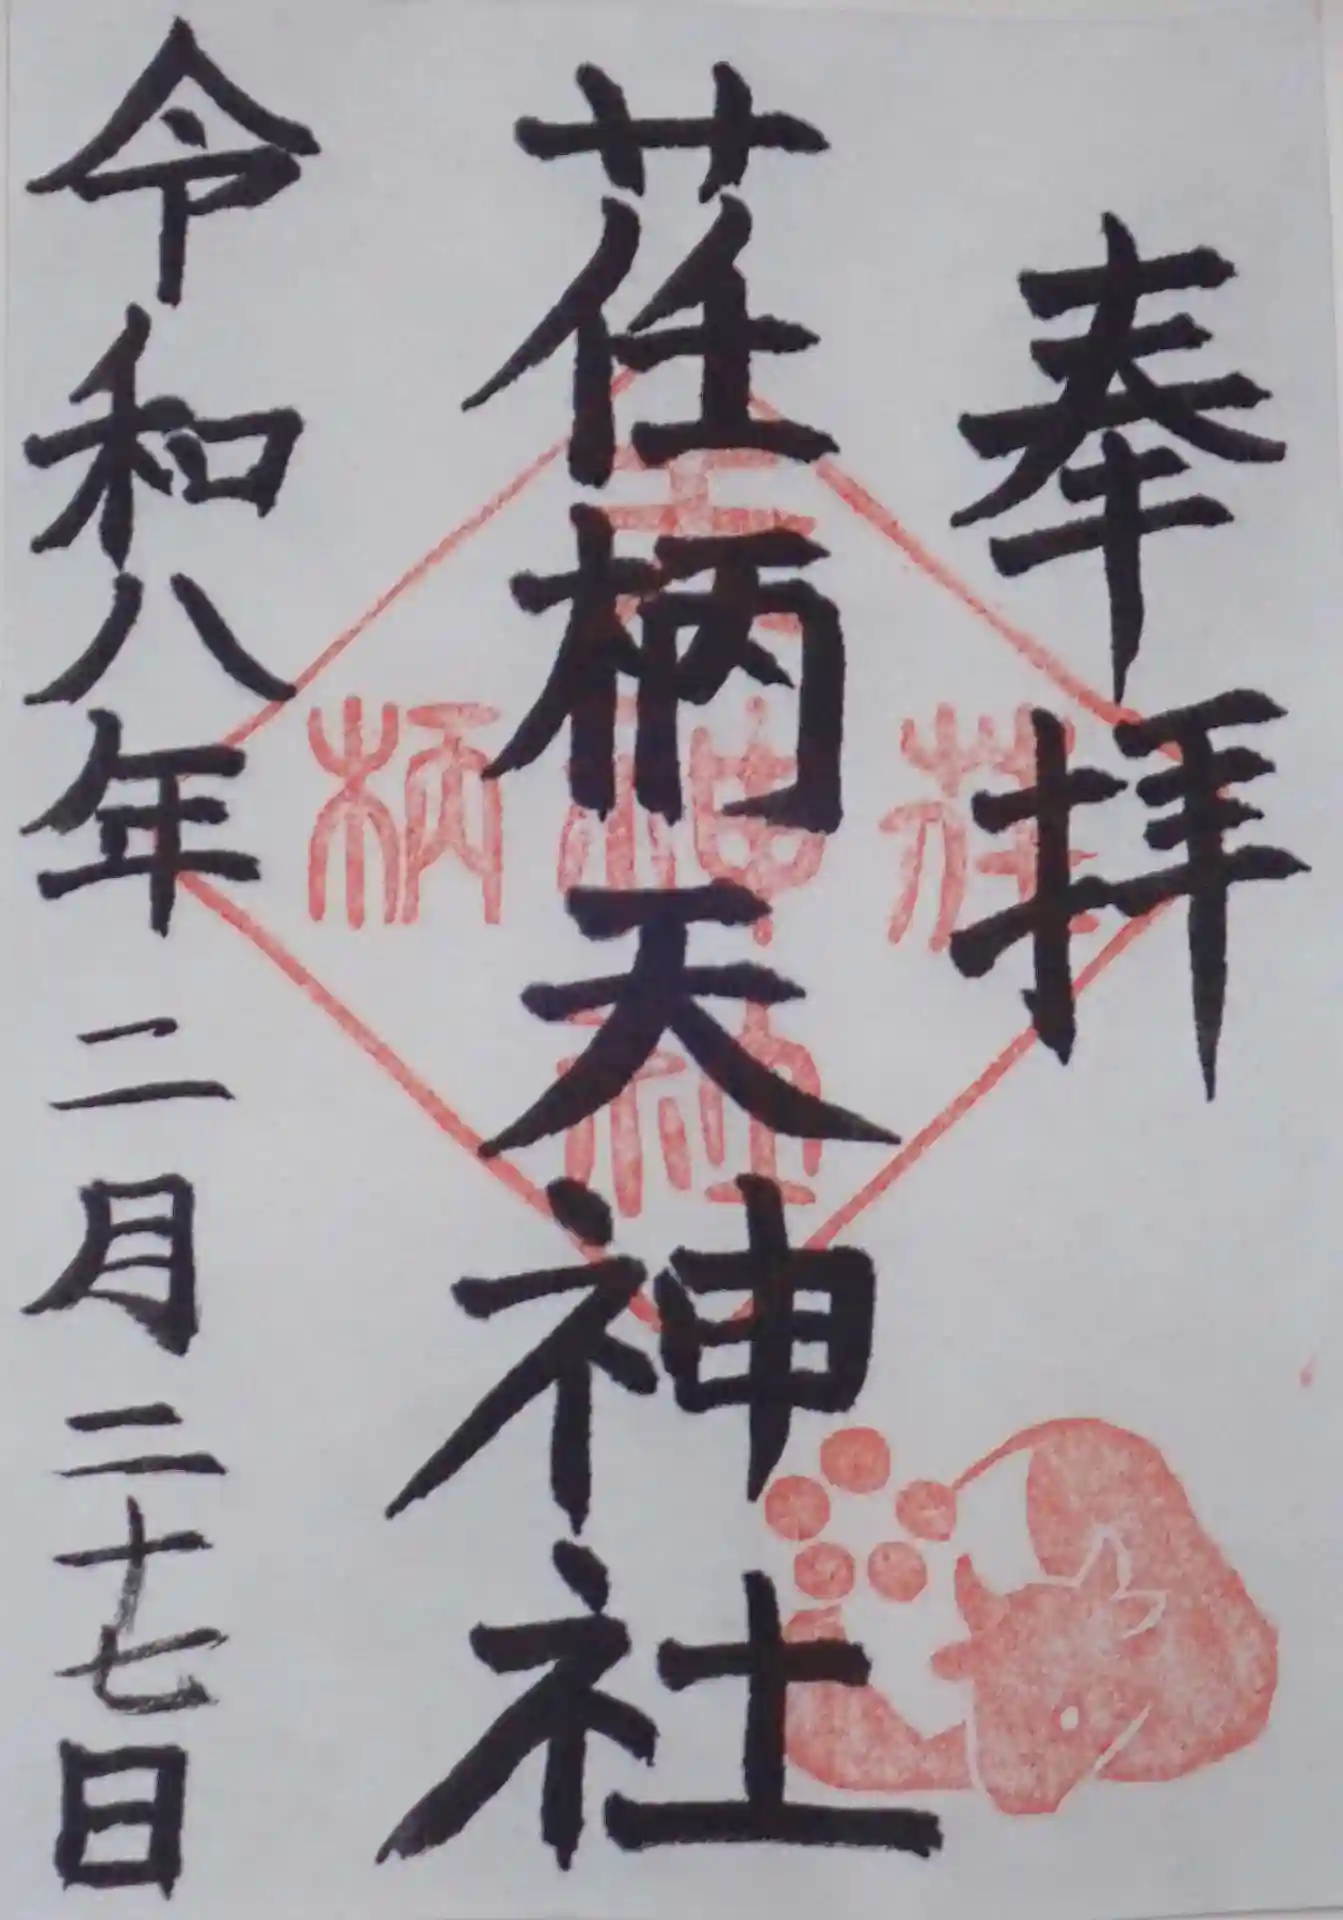 奉拝
荏柄天神社
令和八年二月二十七日
天
荏
神
柄
社